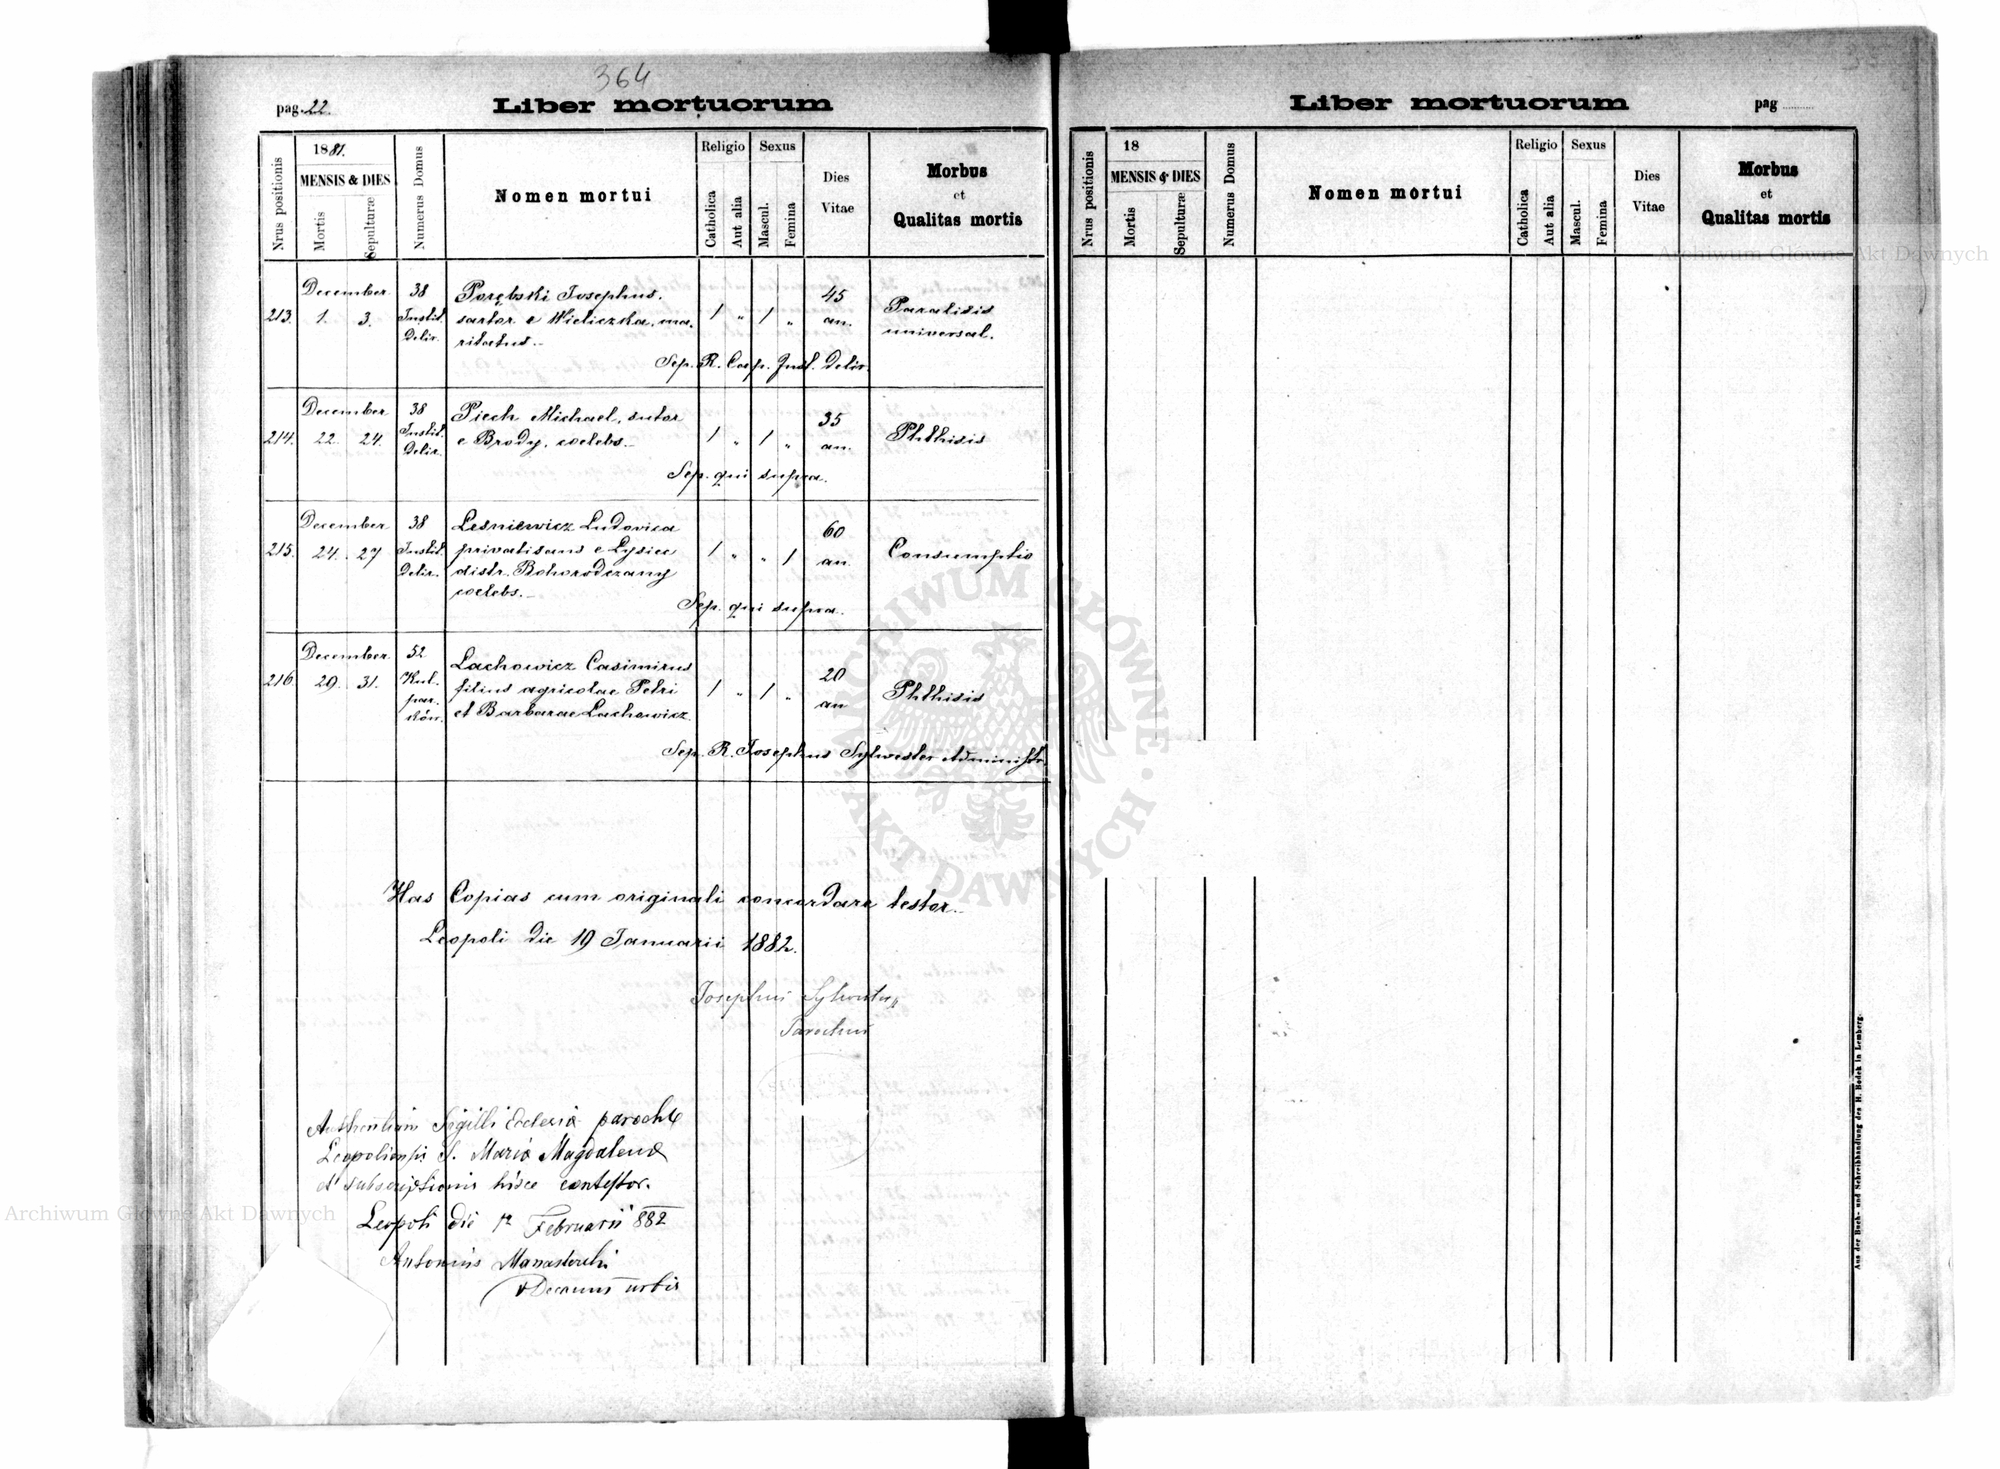 364
pag. 22.
Liber mortuorum
Nrus positionis
1881.
MENSIS & DIES
Mortis
Sepulturæ
Numerus Domus
Nomen mortui
Religio
Catholica
Aut alia
Sexus
Mascul.
Femina
Dies
Vitae
Morbus
et
Qualitas mortis
213. December 1. 3. 38 Instit. Delir. Porębski Josephus. 1 " 1 " 45 an. Paralisis
sartor e Wieliczka, ma- universal.
ritatus.-
Sep. R. Coop. Inst. Delir.
214. December 22. 24. 38 Instit. Delir. Piech Michael, sutor 1 " 1 " 35 an. Phthisis
e Brody, coelebs.-
Sep. qui supra.
215. December 24. 27 38 Instit. Delir. Leśniewicz Ludovica 1 " " 1 60 an. Consumptio
privatisans e Lysiec
distr. Bohorodczany
coelebs.-
Sep. qui supra.
216. December 29. 31. 52 Kul- par- ków. Lachowicz Casimirus 1 " 1 " 20 an Phthisis
filius agricolae Petri
et Barbarae Lachowicz.
Sep. R. Josephus Sylwester Administr.
Has Copias cum originali concordare testor.-
Leopoli die 19 Januarii 1882.
Josephus Sylwester
Parochus
Authentiam Sigilli Ecclesiæ parochæ
Leopoliensis S. Mariæ Magdalenæ
et subscriptionis hisce contestor.
Leopoli die 12 Februarii 882
Antonius
Decanus urbis
Liber mortuorum
pag
Nrus positionis
18
MENSIS & DIES
Mortis
Sepulturæ
Numerus Domus
Nomen mortui
Religio
Catholica
Aut alia
Sexus
Mascul.
Femina
Dies
Vitae
Morbus
et
Qualitas mortis
Aus der Buch- und Schreibhandlung des H. Bodek in Lemberg.
Archiwum Główne Akt Dawnych
Archiwum Główne Akt Dawnych
ARCHIWUM GŁÓWNE · AKT DAWNYCH ·